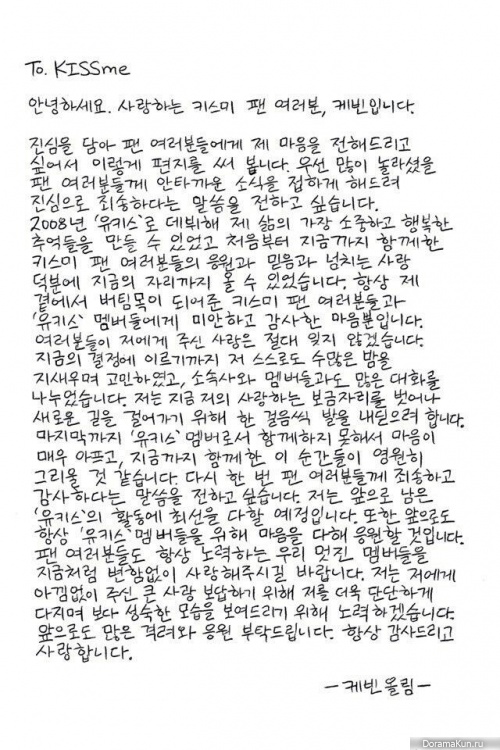 To. KISSme
안녕하세요. 사랑하는 키스미 팬 여러분, 케빈입니다.
진심을 담아 팬 여러분들에게 제 마음을 전해드리고
싶어서 이렇게 편지를 써 봅니다. 우선 많이 놀라셨을
팬 여러분들께 안타까운 소식을 접하게 해드려
진심으로 죄송하다는 말씀을 전하고 싶습니다.
2008년 '유키스'로 데뷔해 제 삶의 가장 소중하고 행복한
추억들을 만들 수 있었고 처음부터 지금까지 함께한
키스미 팬 여러분들의 응원과 믿음과 넘치는 사랑
덕분에 지금의 자리까지 올 수 있었습니다. 항상 제
곁에서 버팀목이 되어준 키스미 팬 여러분들과
'유키스' 멤버들에게 미안하고 감사한 마음뿐입니다.
여러분들이 저에게 주신 사랑은 절대 잊지 않겠습니다.
지금의 결정에 이르기까지 저 스스로도 수많은 밤을
지새우며 고민하였고, 소속사와 멤버들과도 많은 대화를
나누었습니다. 저는 지금 저의 사랑하는 보금자리를 벗어나
새로운 길을 걸어가기 위해 한 걸음씩 발을 내딛으려 합니다.
마지막까지 '유키스' 멤버로서 함께하지 못해서 마음이
매우 아프고, 지금까지 함께한 이 순간들이 영원히
그리울 것 같습니다. 다시 한 번 팬 여러분들께 죄송하고
감사하다는 말씀을 전하고 싶습니다. 저는 앞으로 남은
'유키스'의 활동에 최선을 다할 예정입니다. 또한 앞으로도
항상 '유키스' 멤버들을 위해 마음을 다해 응원할 것입니다.
팬 여러분들도 항상 노력하는 우리 멋진 멤버들을
지금처럼 변함없이 사랑해주시길 바랍니다. 저는 저에게
아낌없이 주신 큰 사랑 보답하기 위해 저를 더욱 단단하게
다지며 보다 성숙한 모습을 보여드리기 위해 노력하겠습니다.
앞으로도 많은 격려와 응원 부탁드립니다. 항상 감사드리고
사랑합니다.
-케빈 올림-
DoramaKun.ru